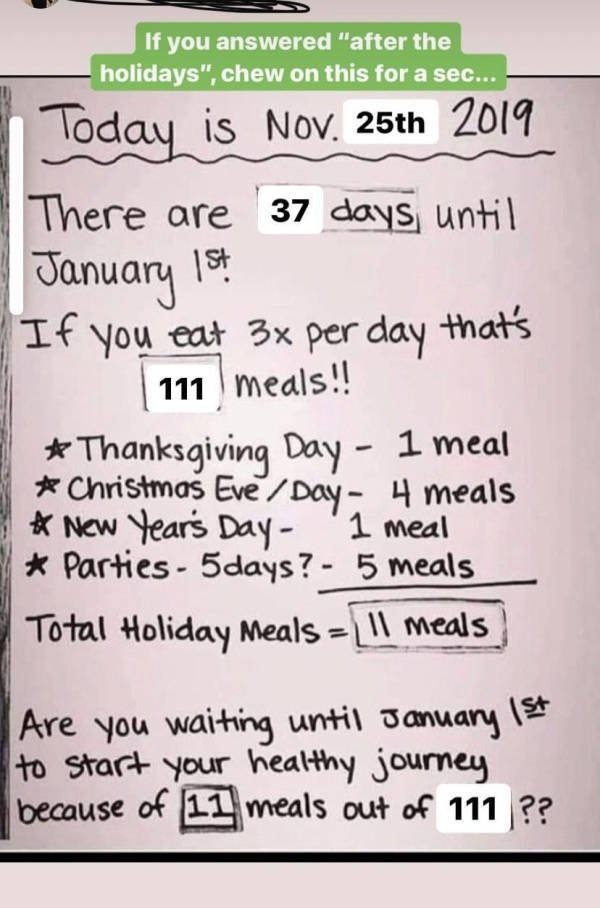 If you answered "after the
holidays", chew on this for a sec...
Today is Nov. 25th 2019
There are 37 days until
January 1st.
If you eat 3x per day that's
111 meals!!
★ Thanksgiving Day - 1 meal
★ Christmas Eve/Day - 4 meals
★ New Year's Day - 1 meal
★ Parties - 5days? - 5 meals
Total Holiday Meals = 11 meals
Are you waiting until January 1st
to start your healthy journey
because of 11 meals out of 111 ??